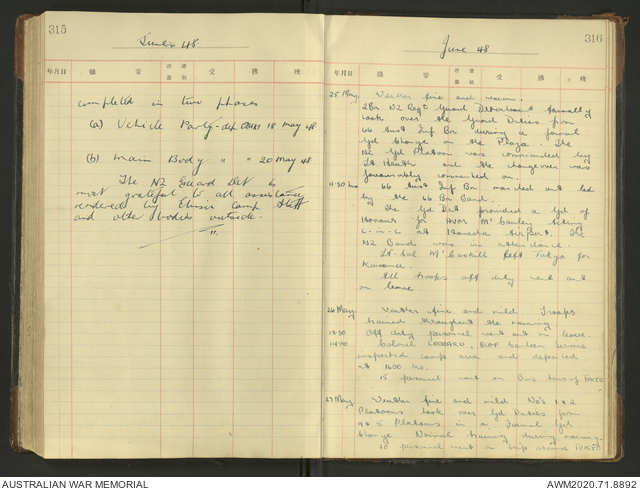 315
June 48
年月日 摘要 受 拂 殘
completed in two phases
(a) Vehicle Party - dep 18 May 48
(b) Main Body " " 20 May 48
The NZ Guard Det is
most grateful to all assistance
rendered by Ebisu Camp Staff
and other bodies outside.
"
316
June 48
年月日 摘要 受 拂 殘
25 May Weather fine and warm.
2Bn NZ Regt Guard Detachment formally
took over the Guard Duties from
66 Aust Inf Bn during a formal
Gd Change on the Plaza. The
NZ Gd Platoon was commanded by
Lt and the changeover was
favourably commented on.
11.30 hrs 66 Aust Inf Bn marched out led
by the 66 Bn Band.
The Gd Det provided a Gd of
Honour for AVM McCauley Acting
C-in-C at Haneda Airport. The
NZ Band was in attendance.
Lt-Col McCaskill left Tokyo for
All troops off duty went out
on leave
26 May Weather fine and mild. Troops
trained throughout the morning.
13.30 Off duty personnel went out on leave.
14.00 Colonel , BCOF Canteen Service
inspected camp area and departed
at 1600 hrs.
15 personnel went on Bus tours of TOKYO
27 May Weather fine and mild No's 1 & 2
Platoons took over Gd Duties from
4 & 5 Platoons in a Formal Gd
Change. Normal training during morning.
20 personnel went on trip around TOKYO
AUSTRALIAN WAR MEMORIAL
AWM2020.71.8892